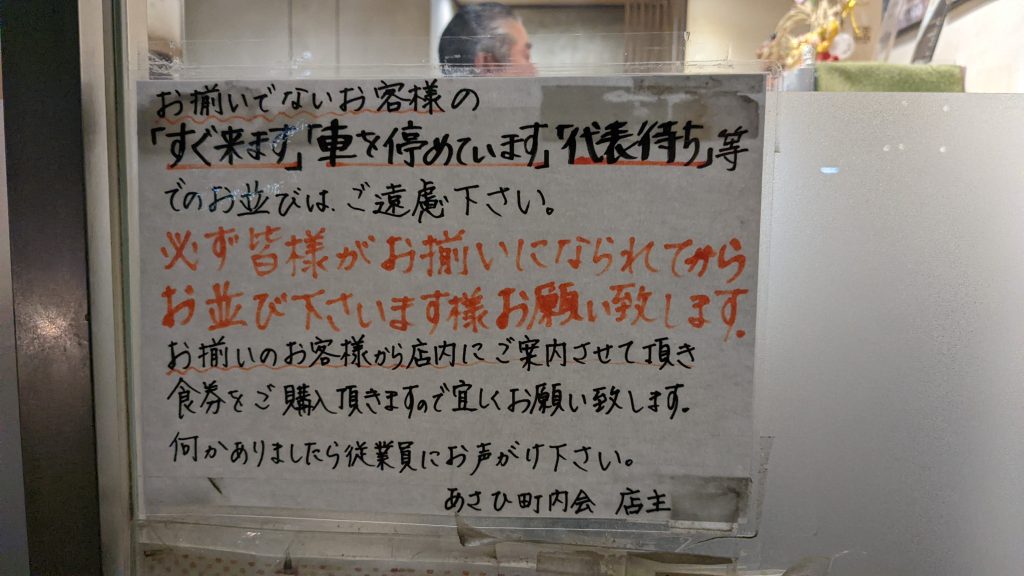 お揃いでないお客様の
「すぐ来ます」「車を停めています」「代表待ち」等
でのお並びは、ご遠慮下さい。
必ず皆様がお揃いになられてから
お並び下さいます様お願い致します。
お揃いのお客様から店内にご案内させて頂き
食券をご購入頂きますので宜しくお願い致します。
何かありましたら従業員にお声がけ下さい。
あさひ町内会 店主